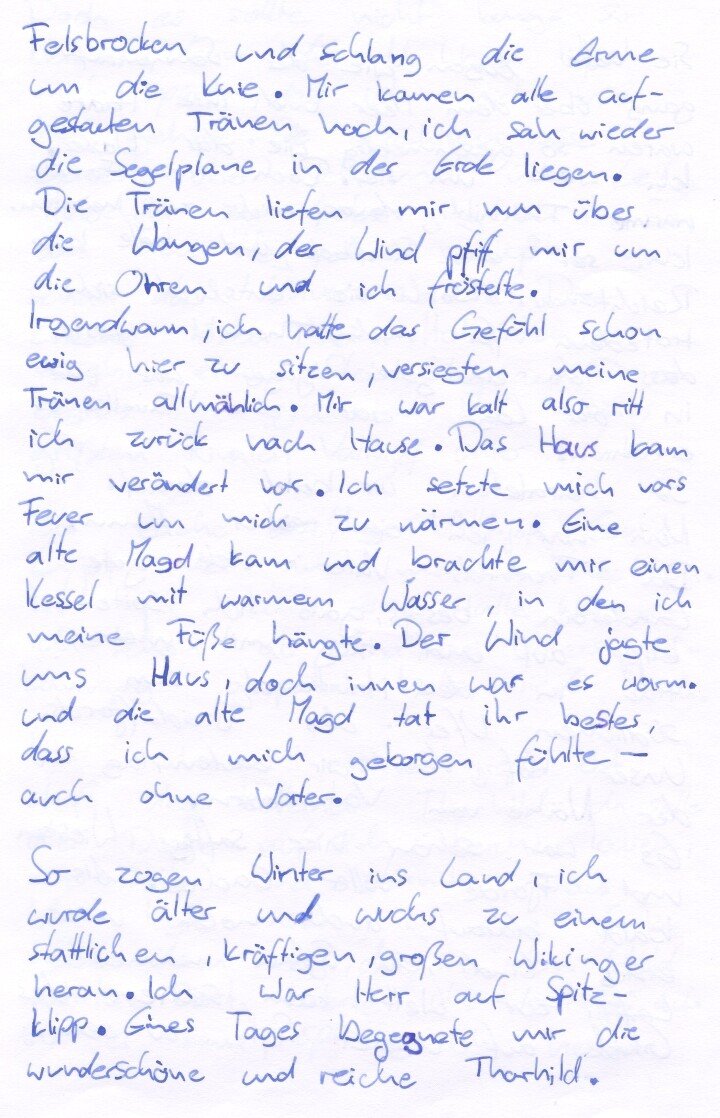 Felsbrocken und schlang die Arme
um die Knie. Mir kamen alle auf-
gestauten Tränen hoch, ich sah wieder
die Segelplane in der Erde liegen.
Die Tränen liefen mir nun über
die Wangen, der Wind pfiff mir um
die Ohren und ich fröstelte.
Irgendwann, ich hatte das Gefühl schon
ewig hier zu sitzen, versiegten meine
Tränen allmählich. Mir war kalt also ritt
ich zurück nach Hause. Das Haus kam
mir verändert vor. Ich setzte mich vors
Feuer um mich zu wärmen. Eine
alte Magd kam und brachte mir einen
Kessel mit warmem Wasser, in den ich
meine Füße hängte. Der Wind jagte
ums Haus, doch innen war es warm.
und die alte Magd tat ihr bestes,
dass ich mich geborgen fühlte –
auch ohne Vater.
So zogen Winter ins Land, ich
wurde älter und wuchs zu einem
stattlichen, kräftigen, großen Wikinger
heran. Ich war Herr auf Spitz-
klipp. Eines Tages begegnete mir die
wunderschöne und reiche Thorhild.